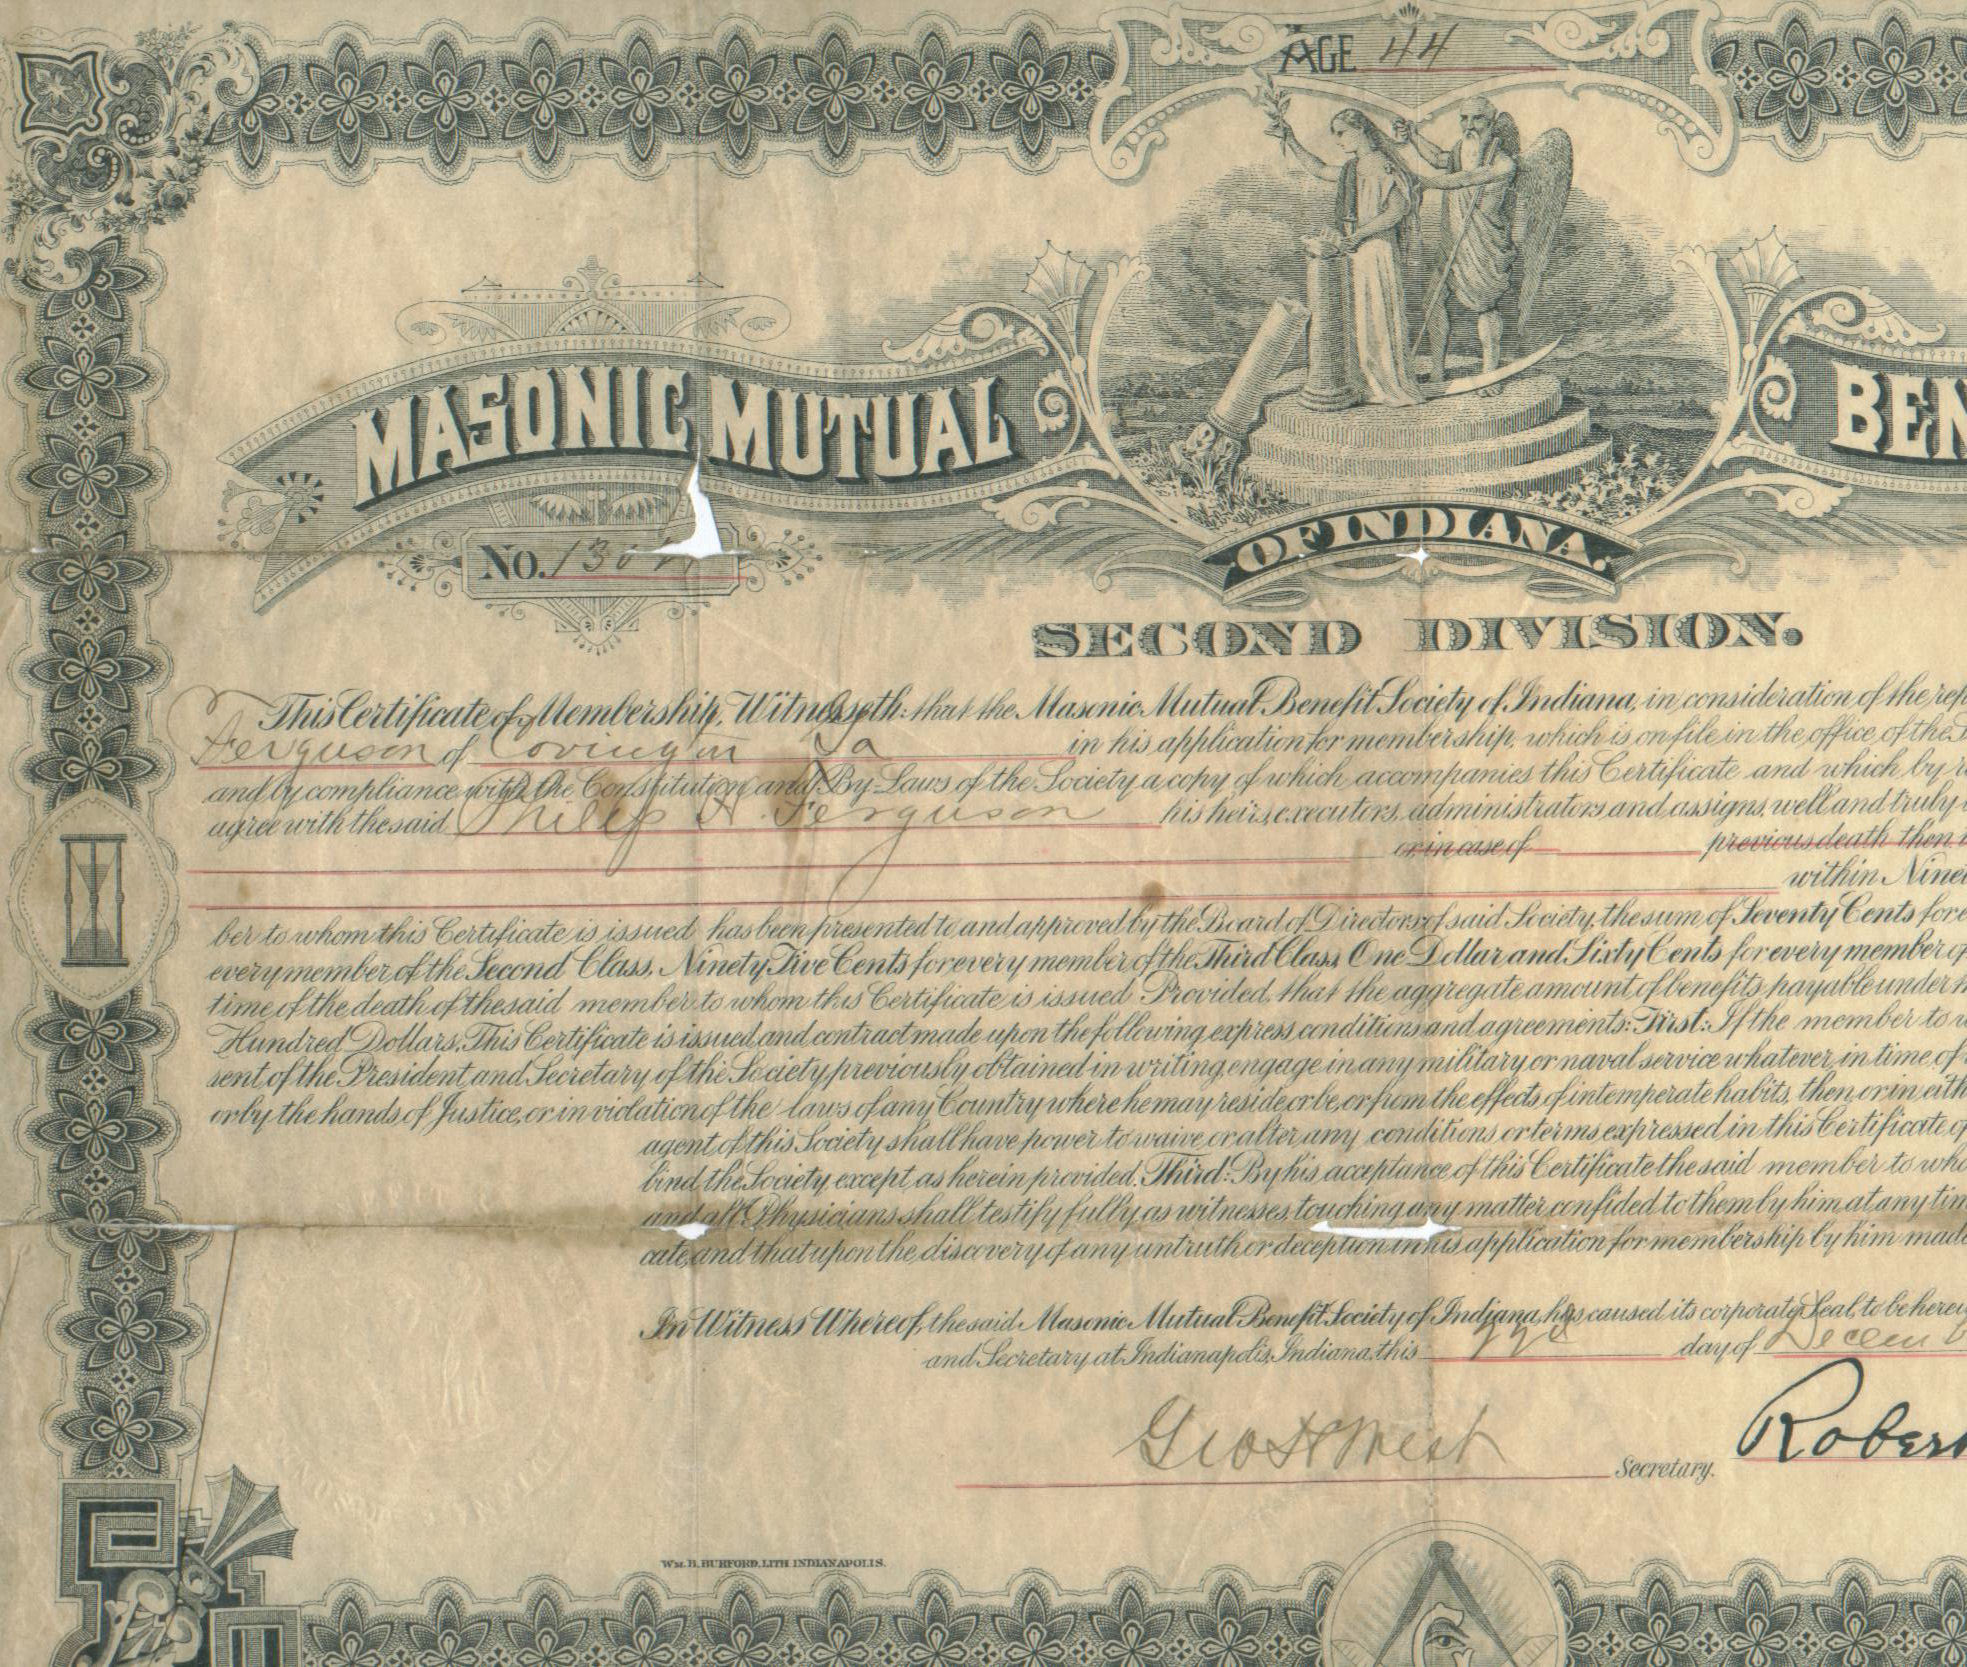 AGE 44
MASONIC MUTUAL BEN
OF INDIANA.
No. 130
SECOND DIVISION.
This Certificate of Membership, Witnesseth: that the Masonic Mutual Benefit Society of Indiana, in consideration of the rep
Ferguson of Covington in his application for membership, which is on file in the office of the S
and by compliance with the Constitution and By-Laws of the Society a copy of which accompanies this Certificate and which by r
agree with the said Philip H. Ferguson his heirs, executors, administrators and assigns, well and truly
or in case of previous death then
within Ninet
ber to whom this Certificate is issued has been presented to and approved by the Board of Directors of said Society, the sum of Seventy Cents for e
every member of the Second Class, Ninety Five Cents for every member of the Third Class, One Dollar and Sixty Cents for every member of
time of the death of the said member to whom this Certificate is issued Provided, that the aggregate amount of benefits payable under
Hundred Dollars. This Certificate is issued and contract made upon the following express conditions and agreements: First: If the member to w
sent of the President and Secretary of the Society previously obtained in writing, engage in any military or naval service whatever, in time of
or by the hands of Justice, or in violation of the laws of any Country where he may reside or be, or from the effects of intemperate habits, then or in eith
agent of this Society shall have power to waive or alter any conditions or terms expressed in this Certificate
bind the Society except as herein provided. Third: By his acceptance of this Certificate the said member to who
and all Physicians shall testify fully as witnesses, touching any matter confided to them by him at any tim
cate, and that upon the discovery of any untruth or deception in his application for membership by him made
In Witness Whereof, the said Masonic Mutual Benefit Society of Indiana, has caused its corporate Seal, to be hereu
and Secretary at Indianapolis, Indiana, this 22d day of Decemb
Geo H West Secretary. Robert
WM. B. BURFORD, LITH INDIANAPOLIS.
G